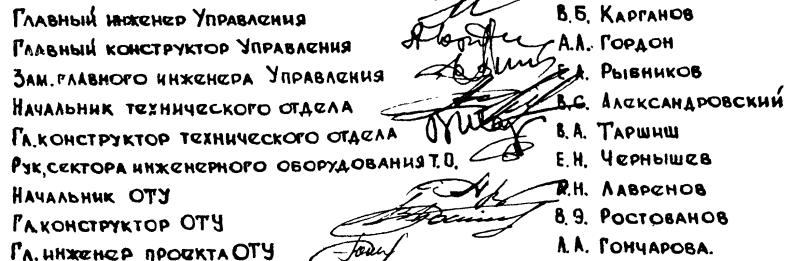 Главный инженер Управления В.Б. Карганов
Главный конструктор Управления А.А. Гордон
Зам. главного инженера Управления Е.А. Рывников
Начальник технического отдела В.С. Александровский
Гл. конструктор технического отдела В.А. Таршиш
Рук. сектора инженерного оборудования Т.О. Е.Н. Чернышев
Начальник ОТУ Лавренов
Гл. конструктор ОТУ В.Э. Ростованов
Гл. инженер проекта ОТУ Л.А. Гончарова.